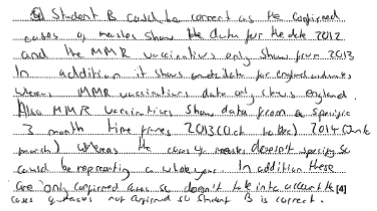 Student B could be correct as the confirmed
cases of measles show the data for the date 2012
and the MMR vaccinations only show from 2013
In addition it shows data for england and wales
whereas MMR vaccinations data only shows england.
Also MMR vaccinations show data from a specific
3 month time frames 2013 (Oct to Dec) 2014 (
march) whereas the cases of measles doesn't specify so
could be representing a whole year. In addition these
are only confirmed cases so doesn't take into account the [4]
cases of measles not confirmed so student B is correct.